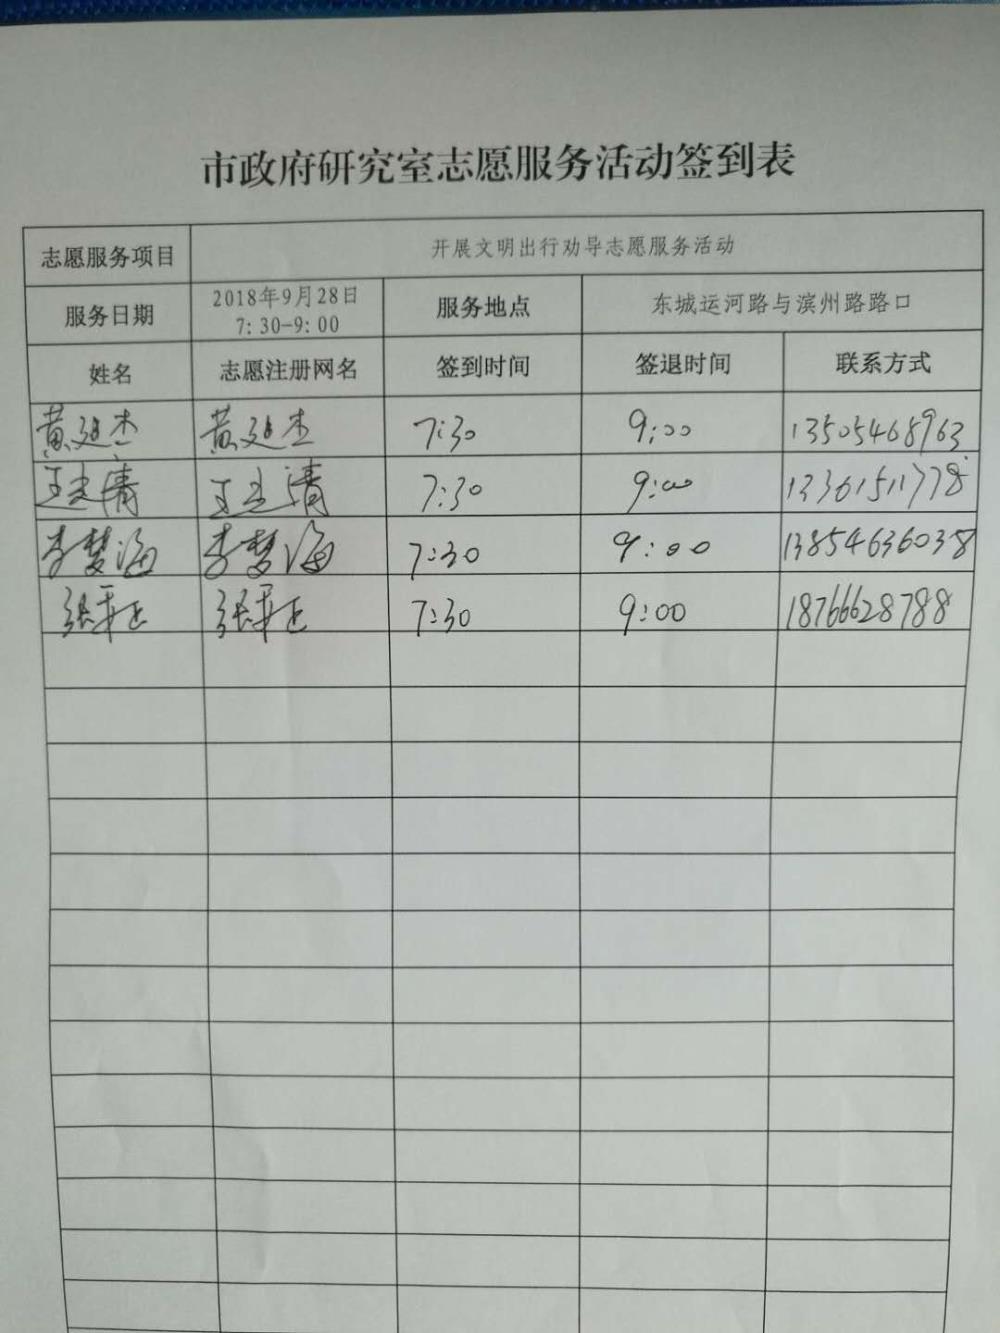 市政府研究室志愿服务活动签到表
志愿服务项目 开展文明出行劝导志愿服务活动
服务日期 2018年9月28日 7:30-9:00 服务地点 东城运河路与滨州路路口
姓名 志愿注册网名 签到时间 签退时间 联系方式
黄延杰 黄延杰 7:30 9:00 13505468963
7:30 9:00 13361511778
李梦海 李梦海 7:30 9:00 13854636038
7:30 9:00 18766628788